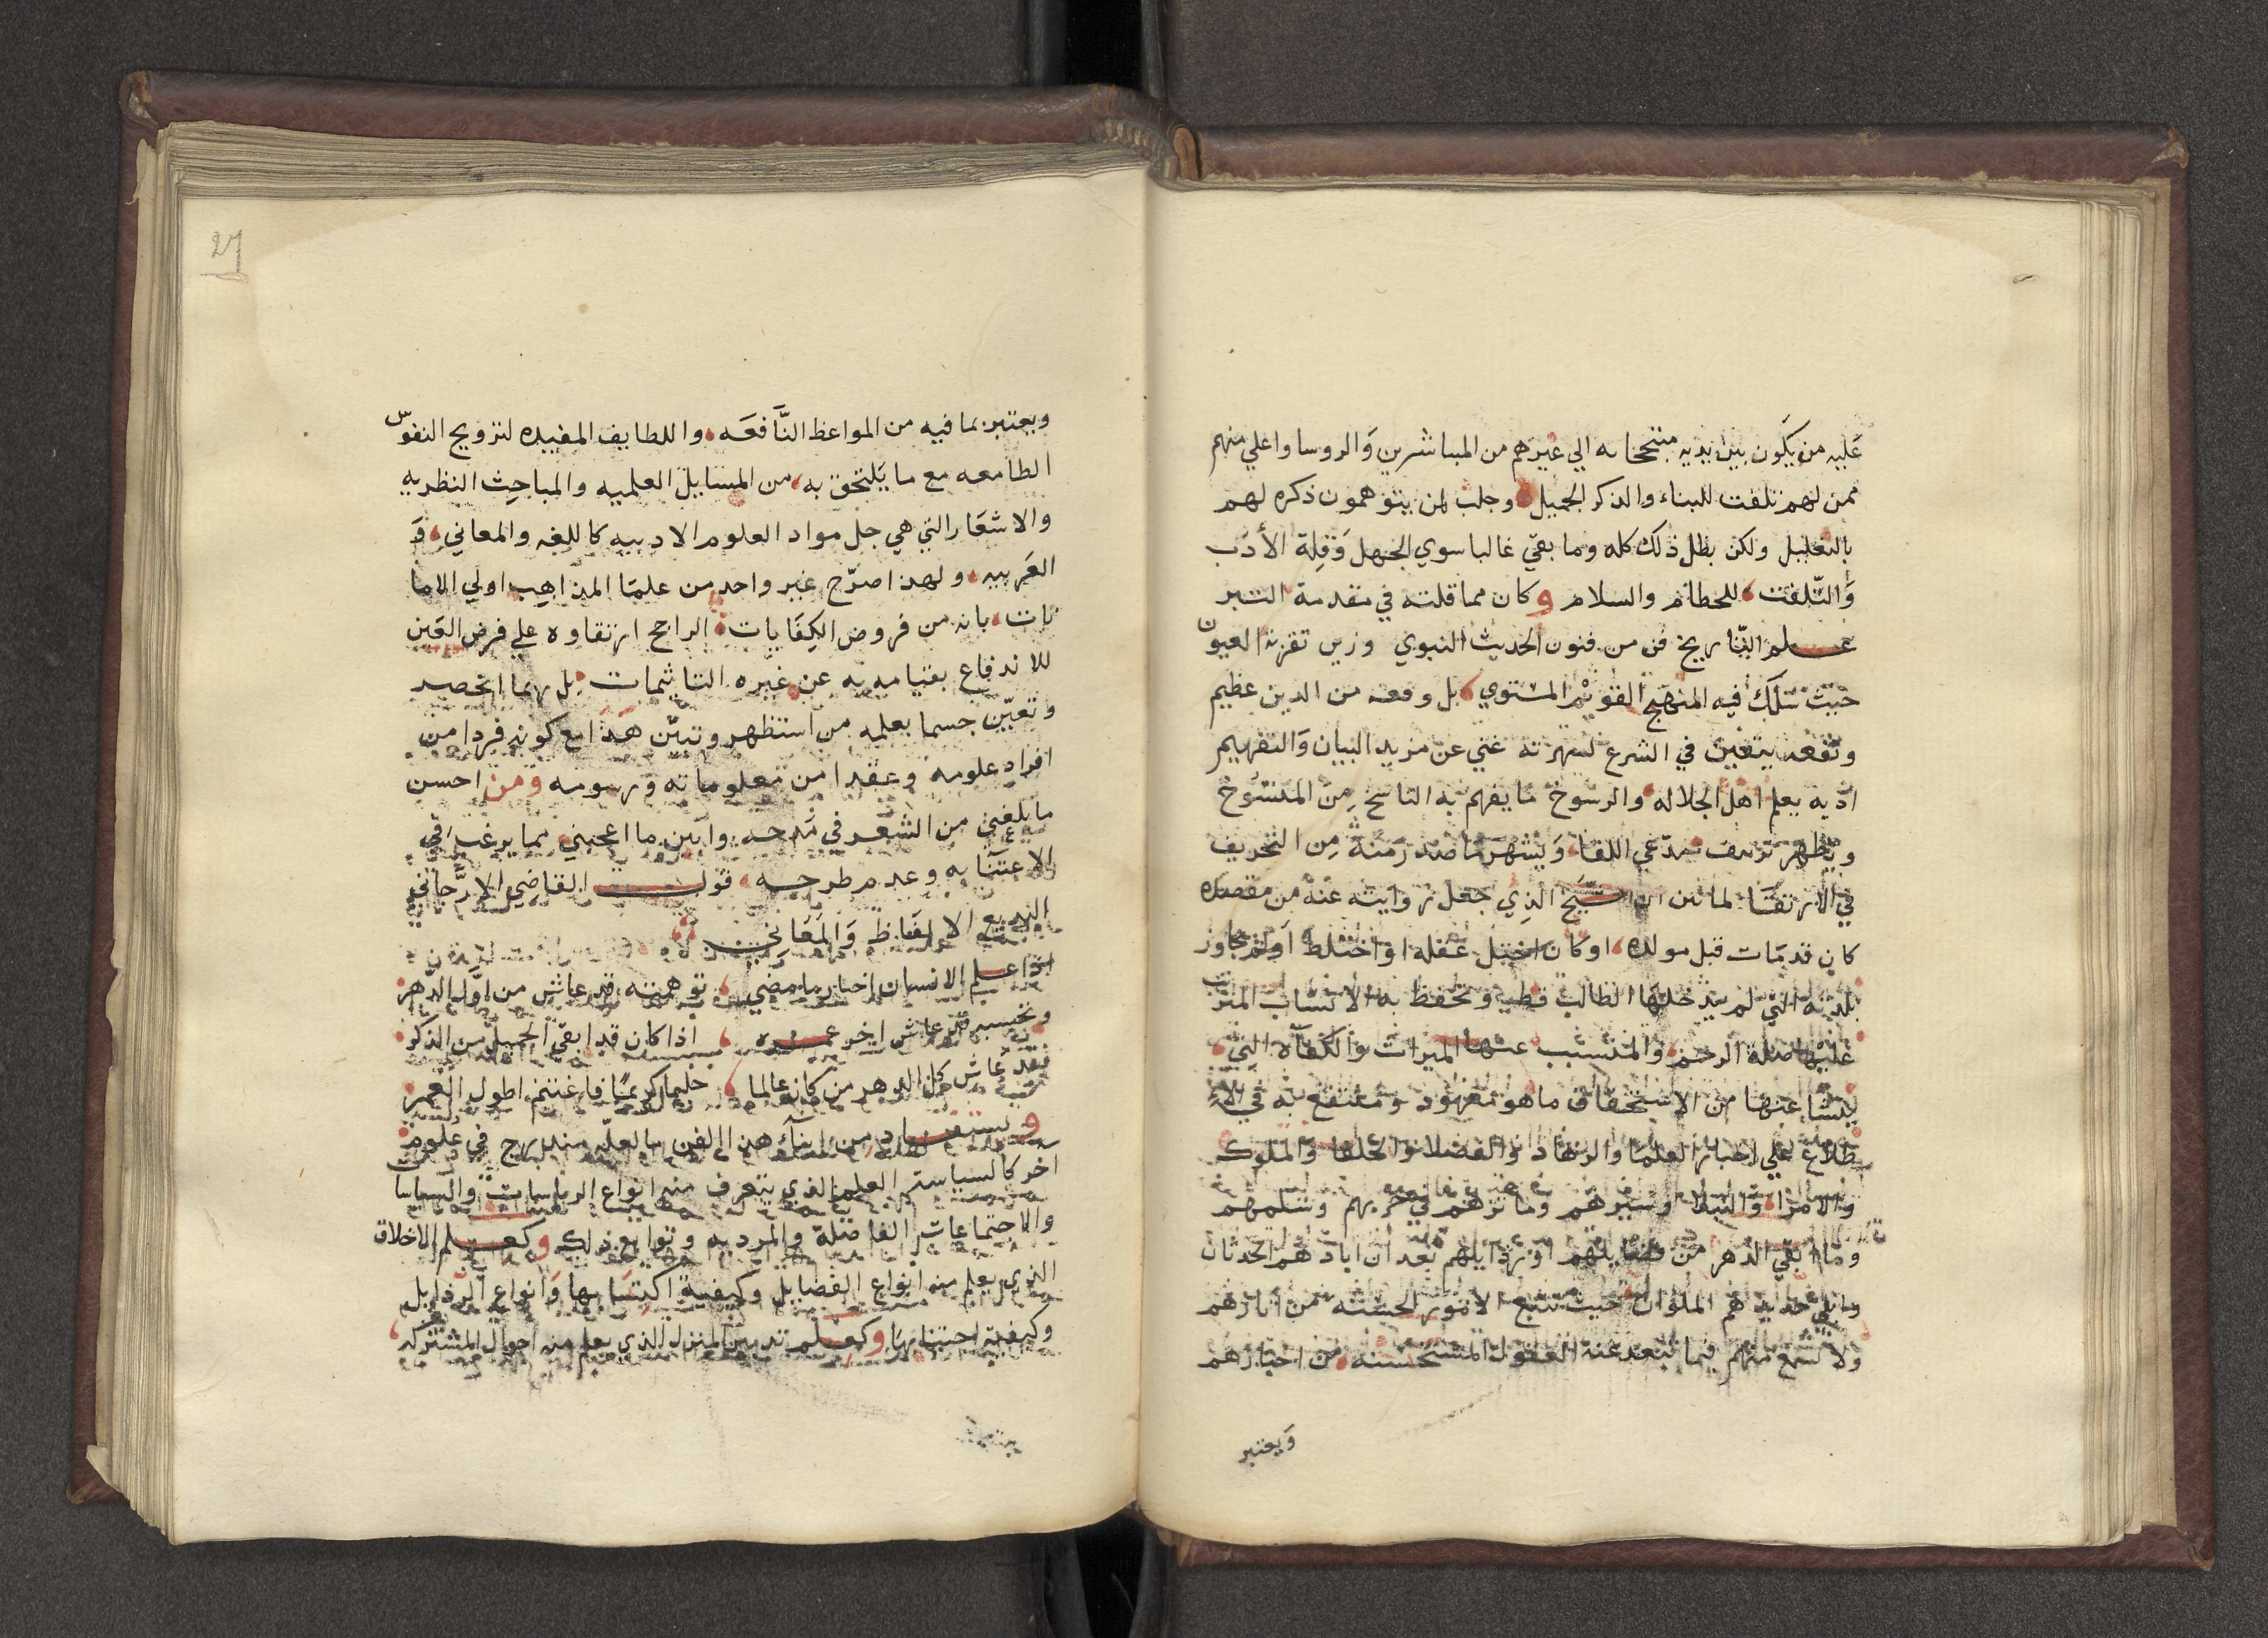 عَليه من يكون بين يديه متبجحا به الي غيرهم من المباشرين وَالروسا واعلي منهم
ممن لهم تلفت للبناء والذكر الجميل وجلب لمن يتوهمون ذكره لهم
بالتعليل ولكن بطل ذلك كله وما بقي غالبا سوي الجهل وَقِلة الأدَب
وَالتّلفت للحطام والسلام وكان مما قلته في مقدمة التبر
علم التّاريخ فن من فنون الحديث النبوي وزين تقربه العيون
حيث سَلك فيه المنهج القويم المستوي بل وقعه من الدين عظيم
ونفعه بيقين في الشرع لشهرته غني عن مزيد البيان وَالتفهيم
اذ به يعلم اهل الجلاله والرسوخ ما يفهم به الناسخ مِن المنسُوخ
ويظهر تزييف مدّعي اللقا وَيشهر ما صدر منه مِن التحريف
في الارتقَا لما تبين ان الشّيخ الذِي جعل روايته عنه من مقصده
كان قد مَات قبل مولده او كان اختل عقله او اختلط او لم يجاوز
بلدته التي لم يدخلها الطالب قط وتحفظ به الانساب المترتب
عليها صلة الرحم والمتسبب عنها الميراث والكفاة التي
ينشا عنها من الاستحقاق ما هو معهود ومنتفع به في الا
طلاع علي اخبار العلما والزهاد والفضلا والخلفا والملوك
والامرا والنبلا وسيرهم وماثرهم في حربهم وسلمهم
وما ابقي الدهر من فضايلهم او رذايلهم بعد ان ابادهم الحدثان
وابلي جديدهم الملوان حيث تتبع الامور الحسنه من اثارهم
ولا يسمع منهم فيما تبعد عنه العقول المستحسنه من اخبارهم
وَيعتبر
ويعتبر بما فيه من المواعظ النّافعَه واللطايف المفيده لترويح النفوس
الطامعه مع ما يَلتحق به من المسايل العلميه والمباحِث النظريه
والاشعَار التي هي جل مواد العلوم الادبيه كاللغه والمعاني وَ
العَربيه ولهذا صرّح غير واحد من علمَا المذاهِب اولي الاما
نات بانه من فروض الكِفَايات الراجح ارتقاوه علي فرض العَين
للاندفاع بقيامه به عن غيره التاثيمات بل ربما انحصر
وتعيّن جسما بعلمه من استظهر وتبيّن هَذا مع كونه فردا من
افراد علومه وعقدا من معلوماته ورسومه ومن احسن
ما بلغني من الشعر في مَدحه وابين ما اعجبني مما يرغب في
الاعتنَا به وعدم طرحه قول القاضي الارَّجاني
البديع الالفَاظ وَالمعَاني
اذا علم الانسان اخبار ما مضي توهمته قد عاش من اوَّل الدّهر
وتحسبه قد عاش اخر عمره اذا كان قد ابقي الجميل من الذكر
فقد عَاش كل الدهر من كان عالما حليما كريمًا فاغتنم اطول العمر
ويستفاد من ابناء هذا الفن ما لعلّه مندرج في عُلوم
اخر كالسياسة العلم الذي يتعرف منه انواع الرياسات والسياسا
والاجتماعات الفاضلة والمرديه وتوابع ذلك وكعلم الاخلاق
الذي يعلم منه انواع الفضايل وكيفية اكتسَابها وَانواع الرذايل
وكيفية اجتنابهَا وكعلم تدبير المنزل الذي يعلم منه احوال المشتركه